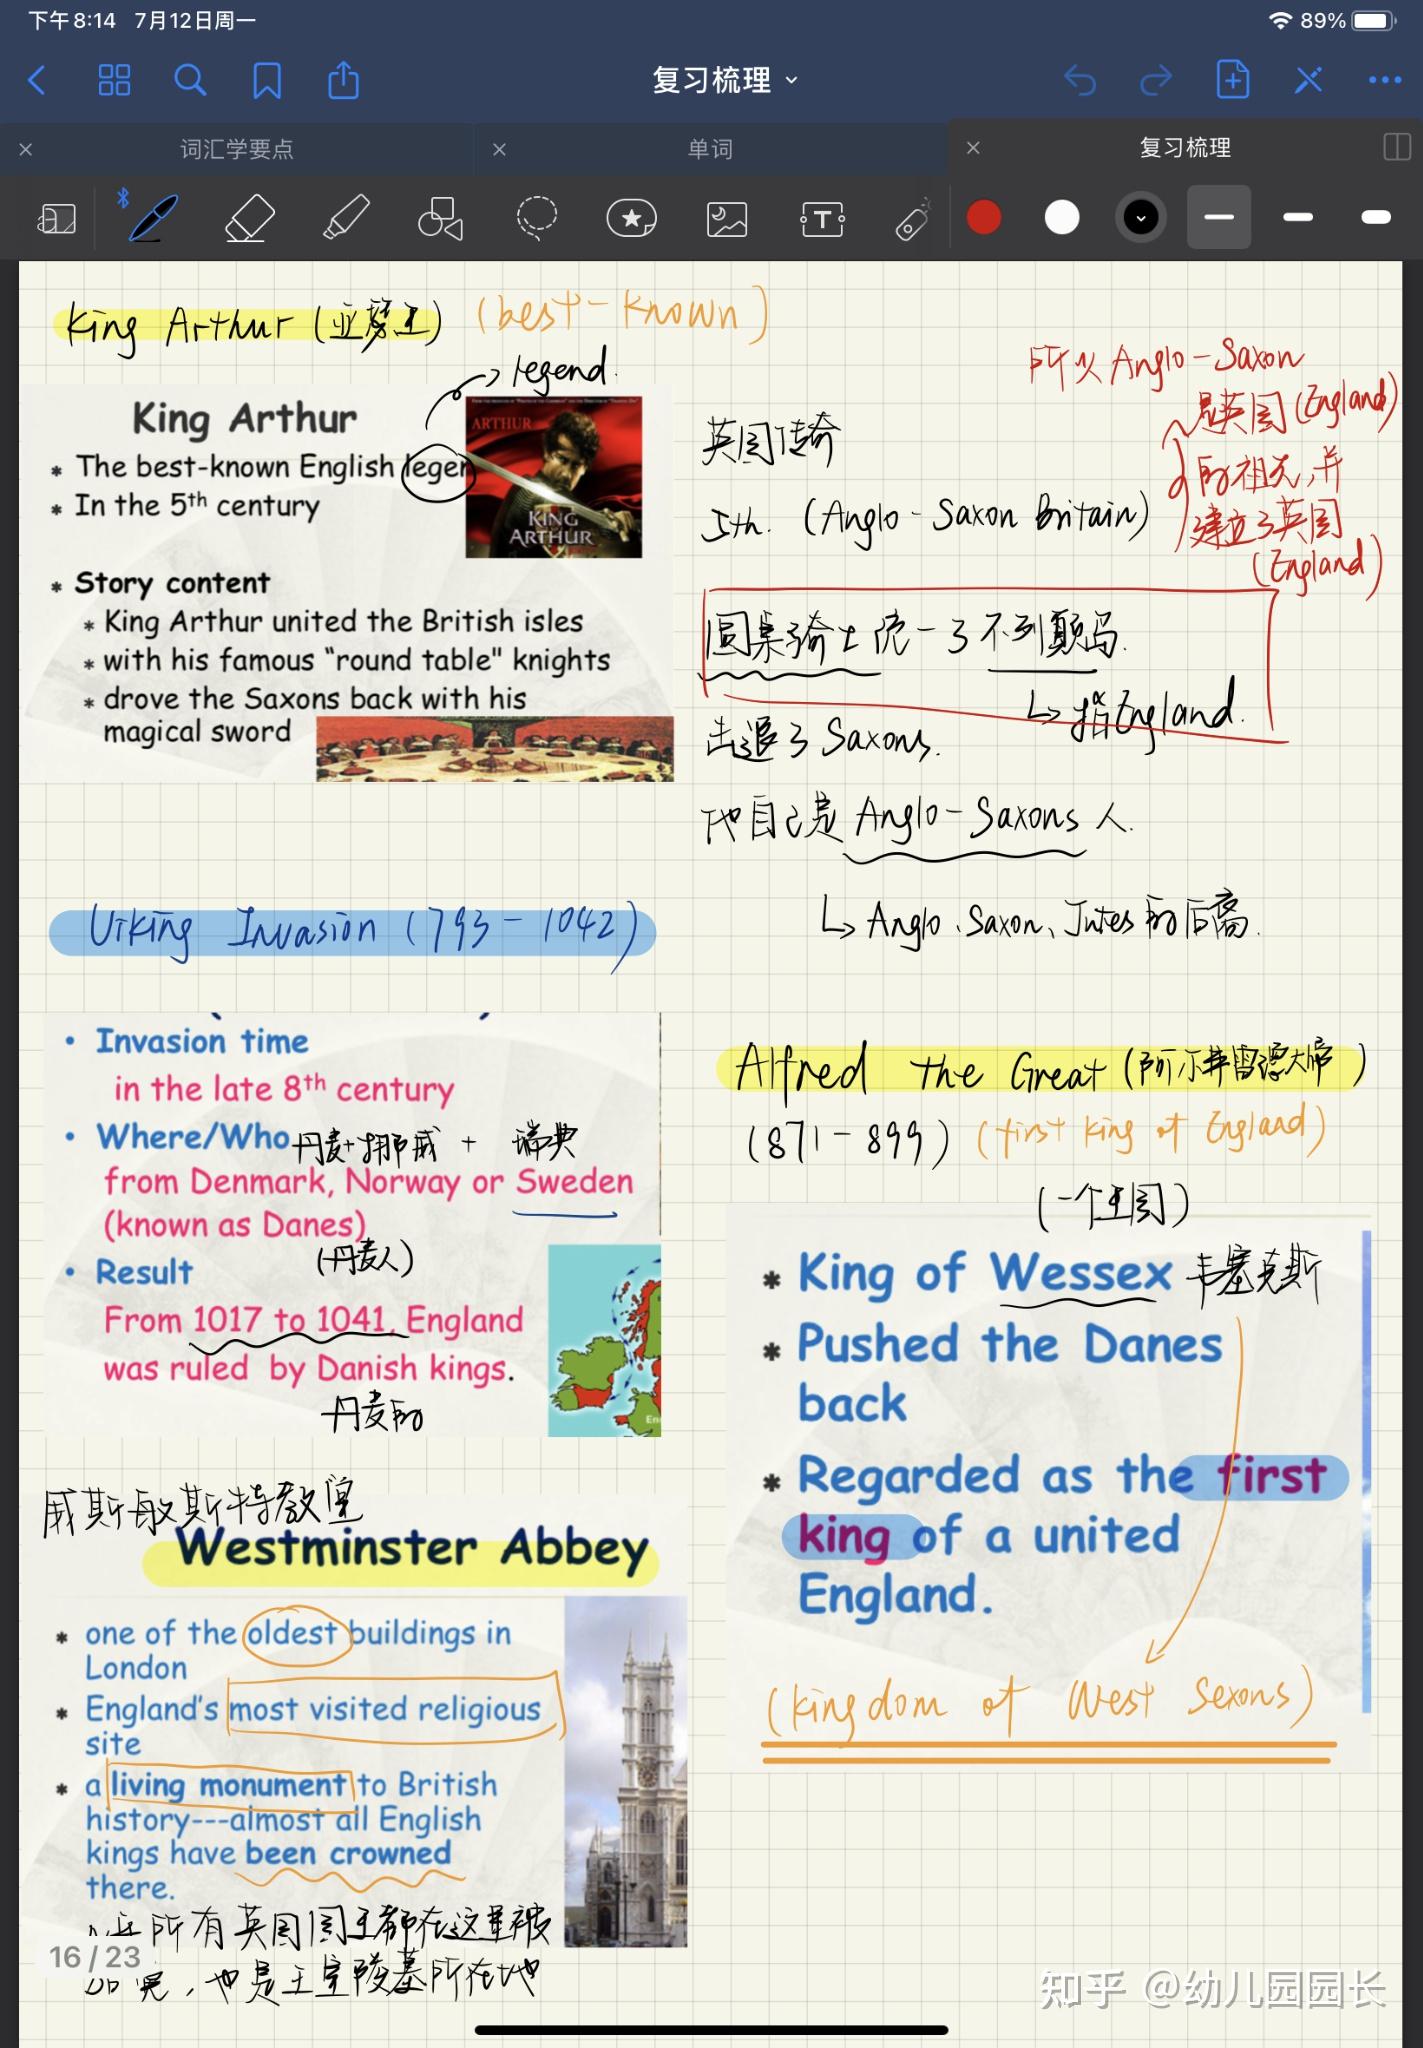 下午8:14 7月12日周一
89%
复习梳理
词汇学要点
单词
复习梳理
King Arthur (亚瑟王) (best-known)
legend.
King Arthur
* The best-known English legen
* In the 5th century
ARTHUR
KING ARTHUR
* Story content
* King Arthur united the British isles
* with his famous “round table" knights
* drove the Saxons back with his
magical sword
所以Anglo-Saxon
是英国(England)
的祖先,并
建立了英国
(England)
英国传输
5th. (Anglo-Saxon Britain)
圆桌骑士统一了不列颠岛.
↳指England.
击退了Saxons.
他自己是Anglo-Saxons人.
↳Anglo、Saxon、Jutes的后裔.
Viking Invasion (793-1042)
• Invasion time
in the late 8th century
• Where/Who 丹麦+挪威 + 瑞典
from Denmark, Norway or Sweden
(known as Danes)
(丹麦人)
• Result
From 1017 to 1041, England
was ruled by Danish kings.
丹麦的
Alfred the Great (阿尔弗雷德大帝)
(871-899) (first king of England)
(一个王国)
* King of Wessex 韦塞克斯
* Pushed the Danes
back
* Regarded as the first
king of a united
England.
(kingdom of West Sexons)
威斯敏斯特教堂
Westminster Abbey
* one of the oldest buildings in
London
* England's most visited religious
site
* a living monument to British
history---almost all English
kings have been crowned
there.
所有英国国王都在这里被
冕,也是王室陵墓所在地
16 / 23
知乎 @幼儿园园长